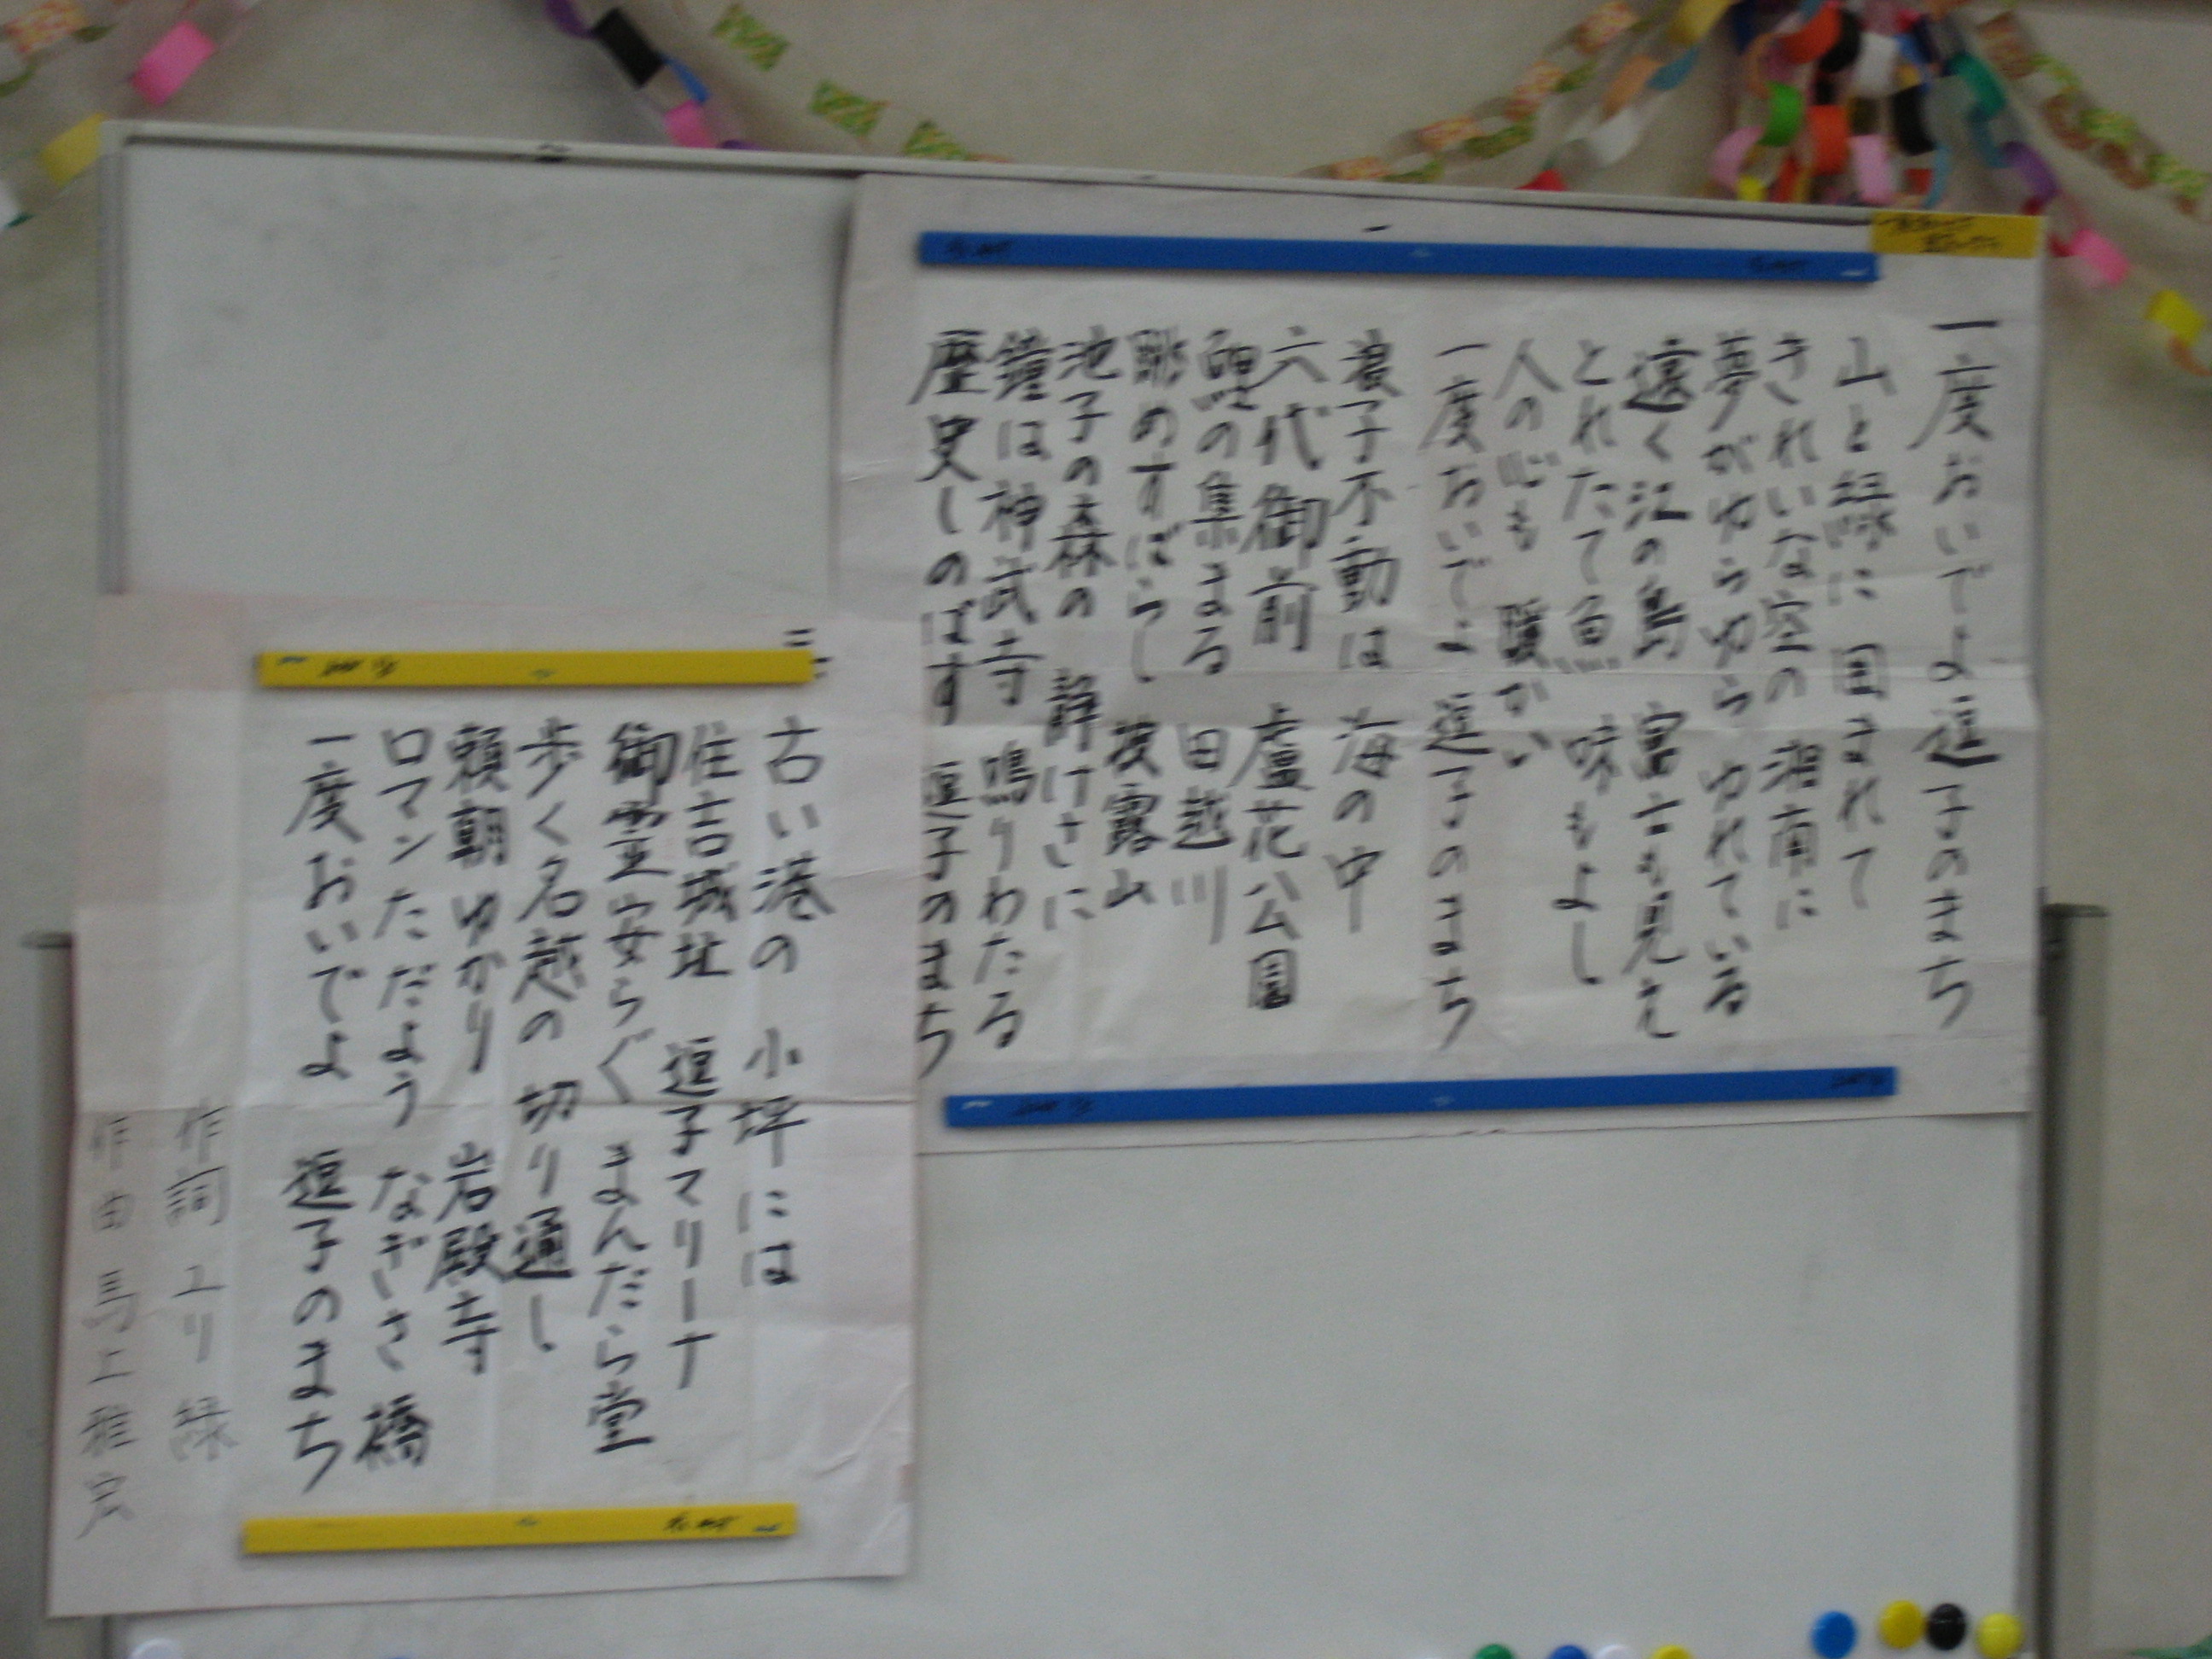 一度おいでよ逗子のまち
山と緑に 囲まれて
きれいな空の 湘南に
夢がゆらゆら ゆれている
遠く江の島 富士も見え
とれたて魚 味もよし
人の心も 暖かい
一度おいでよ 逗子のまち
二
浪子不動は 海の中
六代御前 蘆花公園
鯉の集まる 田越川
眺めすばらし 披露山
池子の森の 静けさに
鐘は神武寺 鳴りわたる
歴史しのばす 逗子のまち
三
古い港の 小坪には
住吉城址 逗子マリーナ
御霊安らぐ まんだら堂
歩く名越の 切り通し
頼朝ゆかり 岩殿寺
ロマンただよう なぎさ橋
一度おいでよ 逗子のまち
作詞 ユリ緑
作曲 馬上雅宏